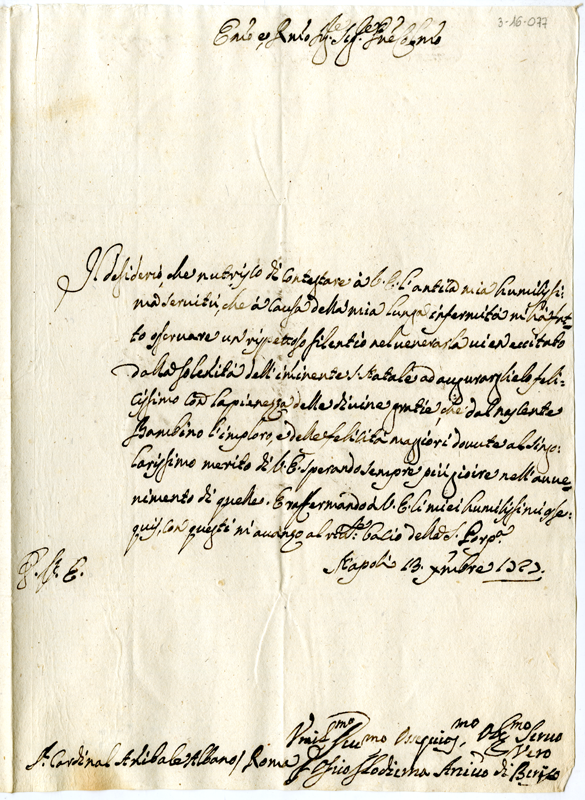 3-16-077
Em̃o e, Rm̃o Sig.re Sig.re Prõne Col.mo
Il desiderio, che nutrisco di contestare à V. E. l'antica mia humilissi:
ma servitù, che à causa della mia lunga infermità m'hà fat:
to osservare un rispettoso silentio nel venerarla vien eccitato
dalla solennità dell'iminente S. Natale ad augurarglielo feli:
cissimo con la pienezza delle divine gratie, che dal nascente
Bambino l'imploro, e delle felicità maggiori dovute al singo:
larissimo merito di V. E. sperando sempre più gioire nell'avve:
nimento di quelle. E raffermando à V. E. li miei humilissimi osse:
quij, con questi m'avanzo al bacio della S. Porp.a
Napoli 13. Xmbre
P. S. E.
Vmil.mo Dev.mo Ossequios.mo Obl.mo Servo
Vero
S.r Cardinal Anibale Albano / Roma
di